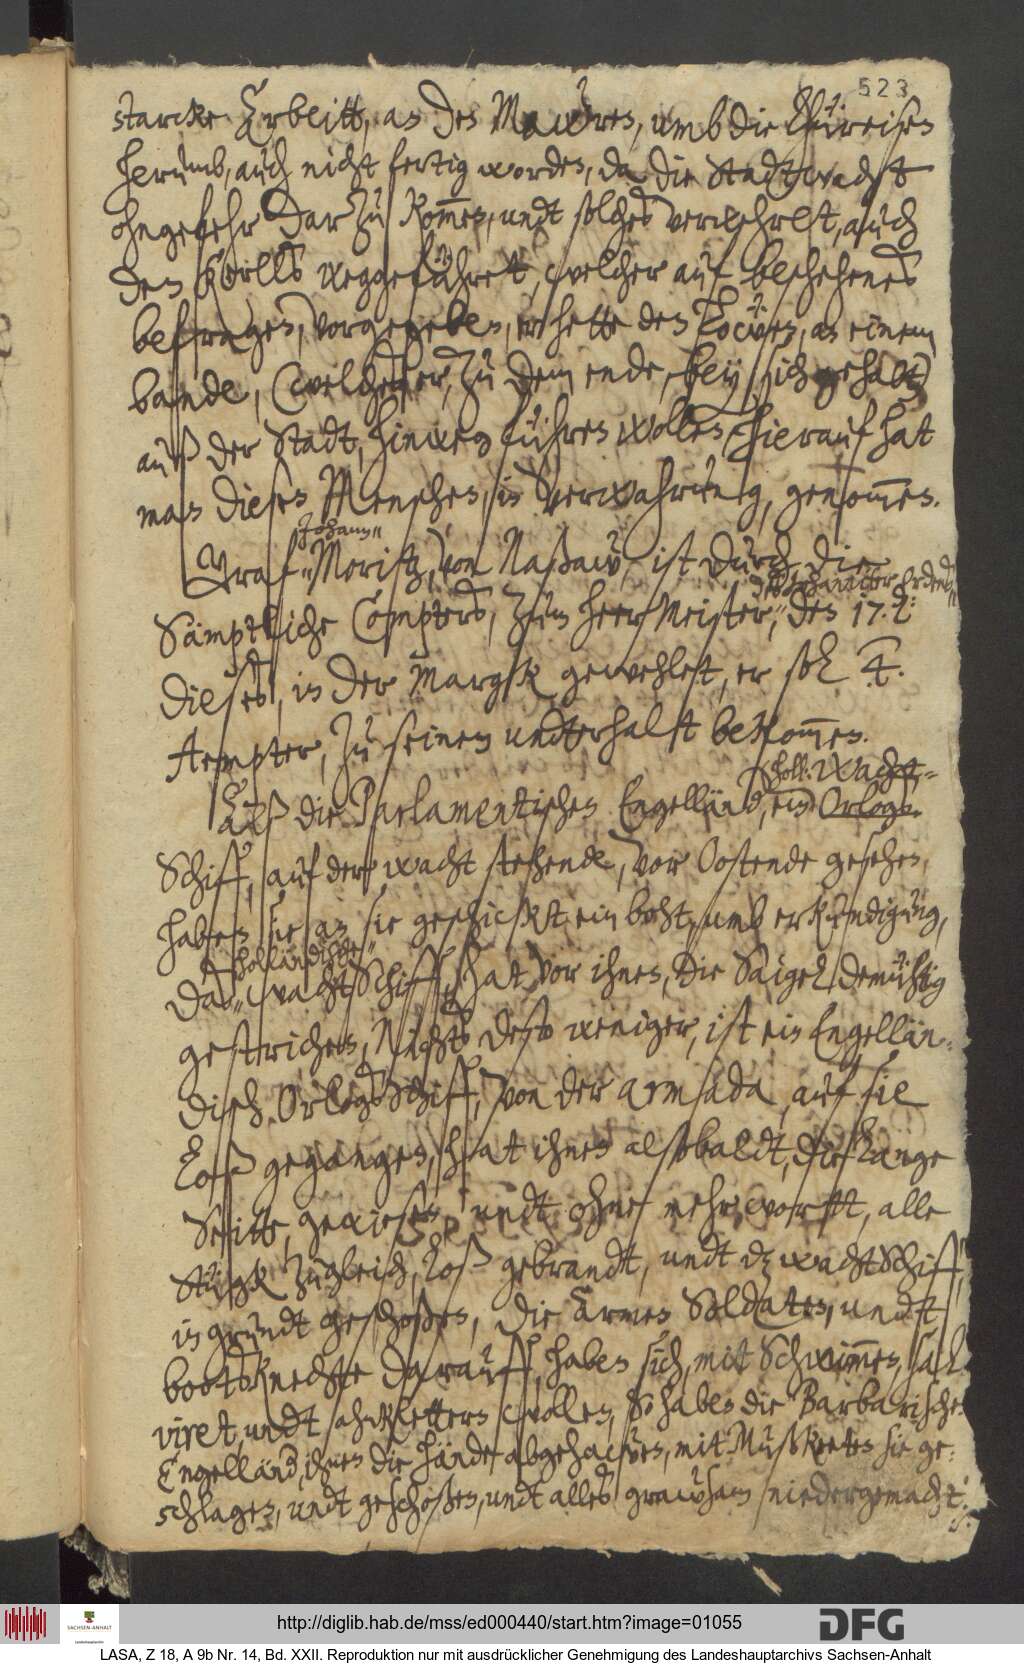 523
starcke Arbeitt, an den Mawren, umb die Thüreisen
herumb, auch nicht fertig worden, da die Stadtwachtt
ohngefehr darzu kommen, undt solches verwehrett, auch
den Kerlls weggeführett, welcher auf beschehenes
befragen, vorgegeben, er hette den Löwen, an einem
bande, (welches er, zu dem ende, bey sich gehabt)
auß der Stadt, hinweg führen wollen. Hierauf hat
man diesen Menschen, in verwahrung, genommen.
Johann"
Graf" Moritz, von Naßaw, ist durch die
des Johanniter Ordens"
Sämptliche Comptors, zum HeerMeister," den 17. d:
dieses, in der Margk gewehlett, er soll 4.
Aempter, zu seinem undterhaltt bekommen.
(holl: Wacht-"
Alß die Parlamentischen Engelländ, ein" Orlogs-
Schiff, auf der wacht stehende, vor Oostende gesehen,
haben sie an sie geschickt ein boht, umb erkundigung,
holländische"
das" wachtSchiff, hat vor ihnen, die Saigel demühtig
gestrichen, Nichts desto weniger, ist ein Engellän-
disch OrlogsSchiff, von der armada, auf sie
loß gegangen, hat ihnen alsobaldt, die lange
Seitte, gewiesen, undt ohne mehr wortt, alle
Stügk zugleich, loß gebrandt, undt dz wachtSchiff,
in grundt geschoßen, die armen Soldaten, undt
bootsknechtte darauff, haben sich, mit Schwimmen, sal-
viret, undt ahnklettern wollen, So haben die Barbarischen
Engelländ, ihnen die hände abgehawen, mit Mußketen sie ge-
schlagen, undt geschoßen, undt alles grawsam niedergemacht.
http://diglib.hab.de/mss/ed000440/start.htm?image=01055
SACHSEN-ANHALT
DFG
LASA, Z 18, A 9b Nr. 14, Bd. XXII. Reproduktion nur mit ausdrücklicher Genehmigung des Landeshauptarchivs Sachsen-Anhalt